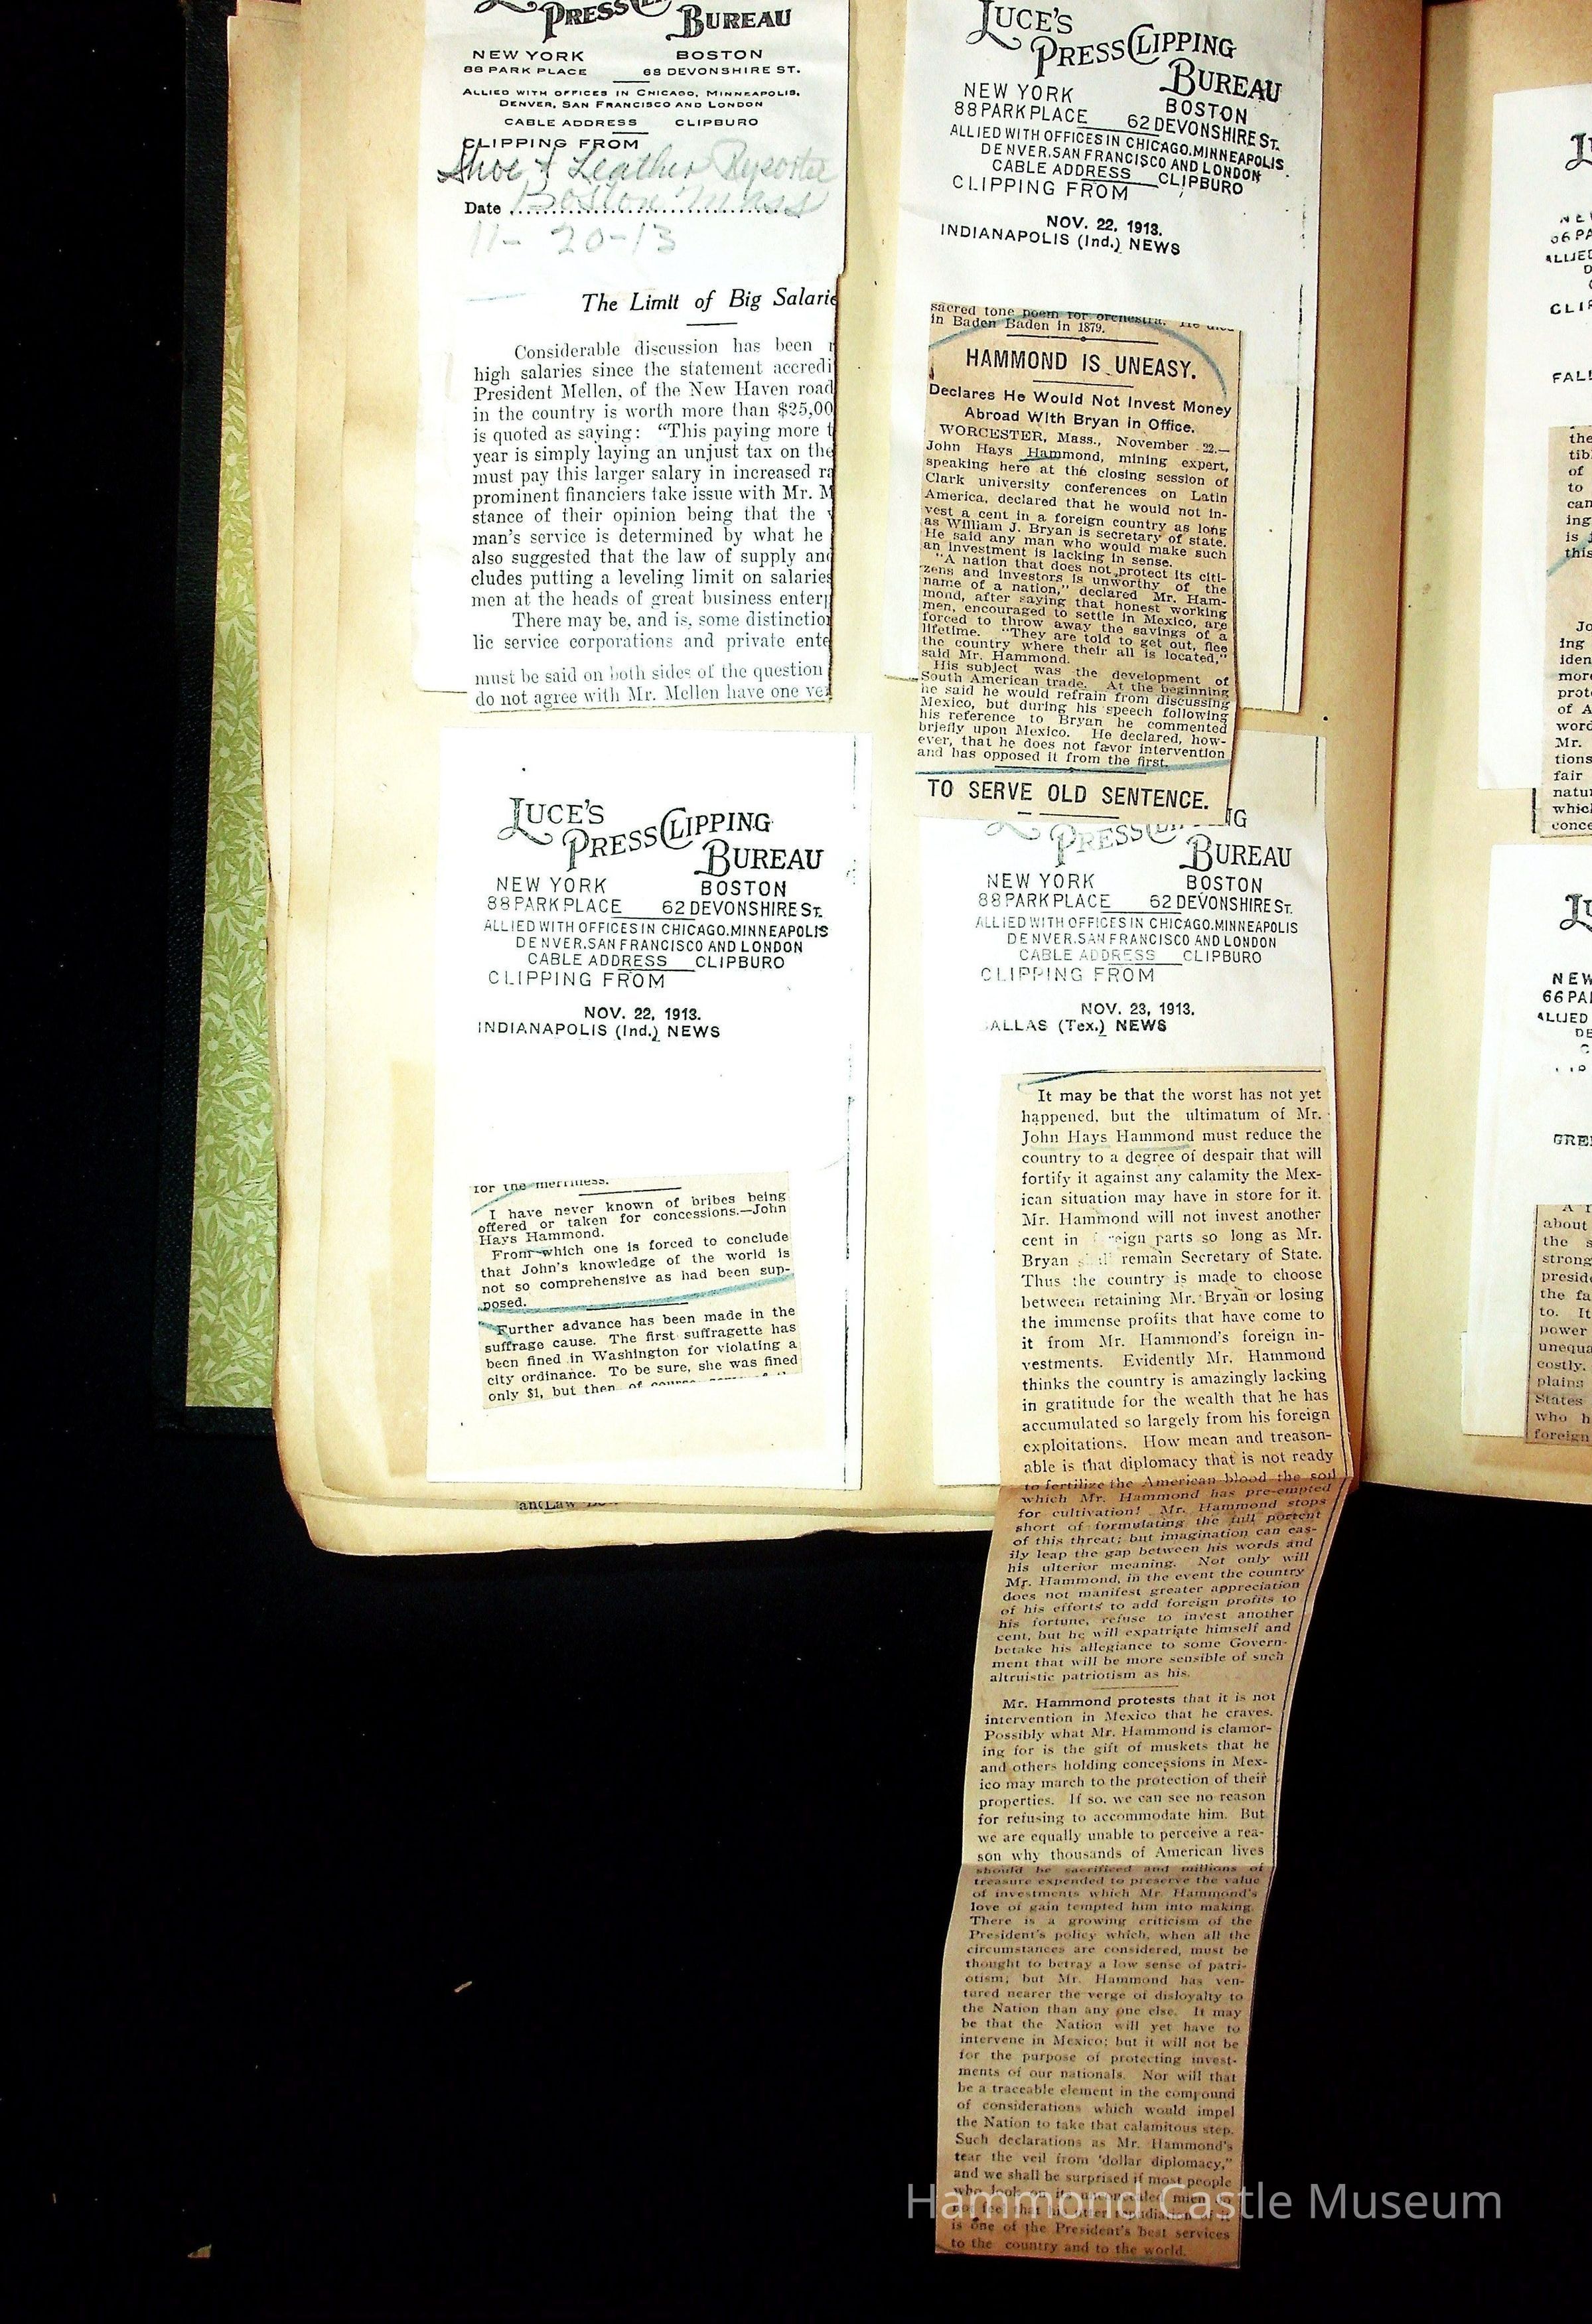 PRESS
BUREAU
NEW YORK BOSTON
88 PARK PLACE 68 DEVONSHIRE ST.
ALLIED WITH OFFICES IN CHICAGO, MINNEAPOLIS,
DENVER, SAN FRANCISCO AND LONDON
CABLE ADDRESS CLIPBURO
CLIPPING FROM
Shoe & Leather Reporter
Date Boston Mass
11-20-13
The Limit of Big
Considerable discussion has been
high salaries since the statement
President Mellen, of the New Haven road
in the country is worth more than
is quoted as saying: "This paying more
year is simply laying an unjust tax on
must pay this larger salary in increased
prominent financiers take issue with Mr.
stance of their opinion being that the
man's service is determined by what he
also suggested that the law of supply
cludes putting a leveling limit on
men at the heads of great business
There may be, and is, some
lic service corporations and private
must be said on both sides of the question
do not agree with Mr. Mellen have one
LUCE'S
PRESS CLIPPING
BUREAU
NEW YORK BOSTON
88 PARK PLACE 62 DEVONSHIRE ST.
ALLIED WITH OFFICES IN CHICAGO. MINNEAPOLIS
DENVER. SAN FRANCISCO AND LONDON
CABLE ADDRESS CLIPBURO
CLIPPING FROM
NOV. 22, 1913.
INDIANAPOLIS (Ind.) NEWS
for the
I have never known of bribes being
offered or taken for concessions.—John
Hays Hammond.
From which one is forced to conclude
that John's knowledge of the world is
not so comprehensive as had been sup-
posed.
Further advance has been made in the
suffrage cause. The first suffragette has
been fined in Washington for violating a
city ordinance. To be sure, she was fined
only $1, but then, of course
LUCE'S
PRESS CLIPPING
BUREAU
NEW YORK BOSTON
88 PARK PLACE 62 DEVONSHIRE ST.
ALLIED WITH OFFICES IN CHICAGO. MINNEAPOLIS
DENVER. SAN FRANCISCO AND LONDON
CABLE ADDRESS CLIPBURO
CLIPPING FROM
NOV. 22, 1913.
INDIANAPOLIS (Ind.) NEWS
sacred tone poem for orchestra. He
in Baden Baden in 1879.
HAMMOND IS UNEASY.
Declares He Would Not Invest Money
Abroad With Bryan in Office.
WORCESTER, Mass., November 22.—
John Hays Hammond, mining expert,
speaking here at the closing session of
Clark university conferences on Latin
America, declared that he would not in-
vest a cent in a foreign country as long
as William J. Bryan is secretary of state.
He said any man who would make such
an investment is lacking in sense.
"A nation that does not protect its citi-
zens and investors is unworthy of the
name of a nation," declared Mr. Ham-
mond, after saying that honest working
men, encouraged to settle in Mexico, are
forced to throw away the savings of a
lifetime. "They are told to get out, flee
the country where their all is located,"
said Mr. Hammond.
His subject was the development of
South American trade. At the beginning
he said he would refrain from discussing
Mexico, but during his speech following
his reference to Bryan he commented
briefly upon Mexico. He declared, how-
ever, that he does not favor intervention
and has opposed it from the first.
TO SERVE OLD SENTENCE.
BUREAU
NEW YORK BOSTON
88 PARK PLACE 62 DEVONSHIRE ST.
ALLIED WITH OFFICES IN CHICAGO. MINNEAPOLIS
DENVER. SAN FRANCISCO AND LONDON
CABLE ADDRESS CLIPBURO
CLIPPING FROM
NOV. 23, 1913.
ALLAS (Tex.) NEWS
It may be that the worst has not yet
happened, but the ultimatum of Mr.
John Hays Hammond must reduce the
country to a degree of despair that will
fortify it against any calamity the Mex-
ican situation may have in store for it.
Mr. Hammond will not invest another
cent in parts so long as Mr.
Bryan remain Secretary of State.
Thus the country is made to choose
between retaining Mr. Bryan or losing
the immense profits that have come to
it from Mr. Hammond's foreign in-
vestments. Evidently Mr. Hammond
thinks the country is amazingly lacking
in gratitude for the wealth that he has
accumulated so largely from his foreign
exploitations. How mean and treason-
able is that diplomacy that is not ready
to fertilize the American blood the soil
which Mr. Hammond has pre-empted
for cultivation! Mr. Hammond stops
short of formulating the full portent
of this threat; but imagination can eas-
ily leap the gap between his words and
his ulterior meaning. Not only will
Mr. Hammond, in the event the country
does not manifest greater appreciation
of his efforts to add foreign profits to
his fortune, refuse to invest another
cent, but he will expatriate himself and
betake his allegiance to some Govern-
ment that will be more sensible of such
altruistic patriotism as his.
Mr. Hammond protests that it is not
intervention in Mexico that he craves.
Possibly what Mr. Hammond is clamor-
ing for is the gift of muskets that he
and others holding concessions in Mex-
ico may march to the protection of their
properties. If so, we can see no reason
for refusing to accommodate him. But
we are equally unable to perceive a rea-
son why thousands of American lives
should be sacrificed and millions of
treasure expended to preserve the value
of investments which Mr. Hammond's
love of gain tempted him into making.
There is a growing criticism of the
President's policy which, when all the
circumstances are considered, must be
thought to betray a low sense of patri-
otism; but Mr. Hammond has ven-
tured nearer the verge of disloyalty to
the Nation than any one else. It may
be that the Nation will yet have to
intervene in Mexico; but it will not be
for the purpose of protecting invest-
ments of our nationals. Nor will that
be a traceable element in the compound
of considerations which would impel
the Nation to take that calamitous step.
Such declarations as Mr. Hammond's
tear the veil from 'dollar diplomacy,"
and we shall be surprised if most people
who look on its unconcealed mien
is one of the President's best services
to the country and to the world.
Hammond Castle Museum